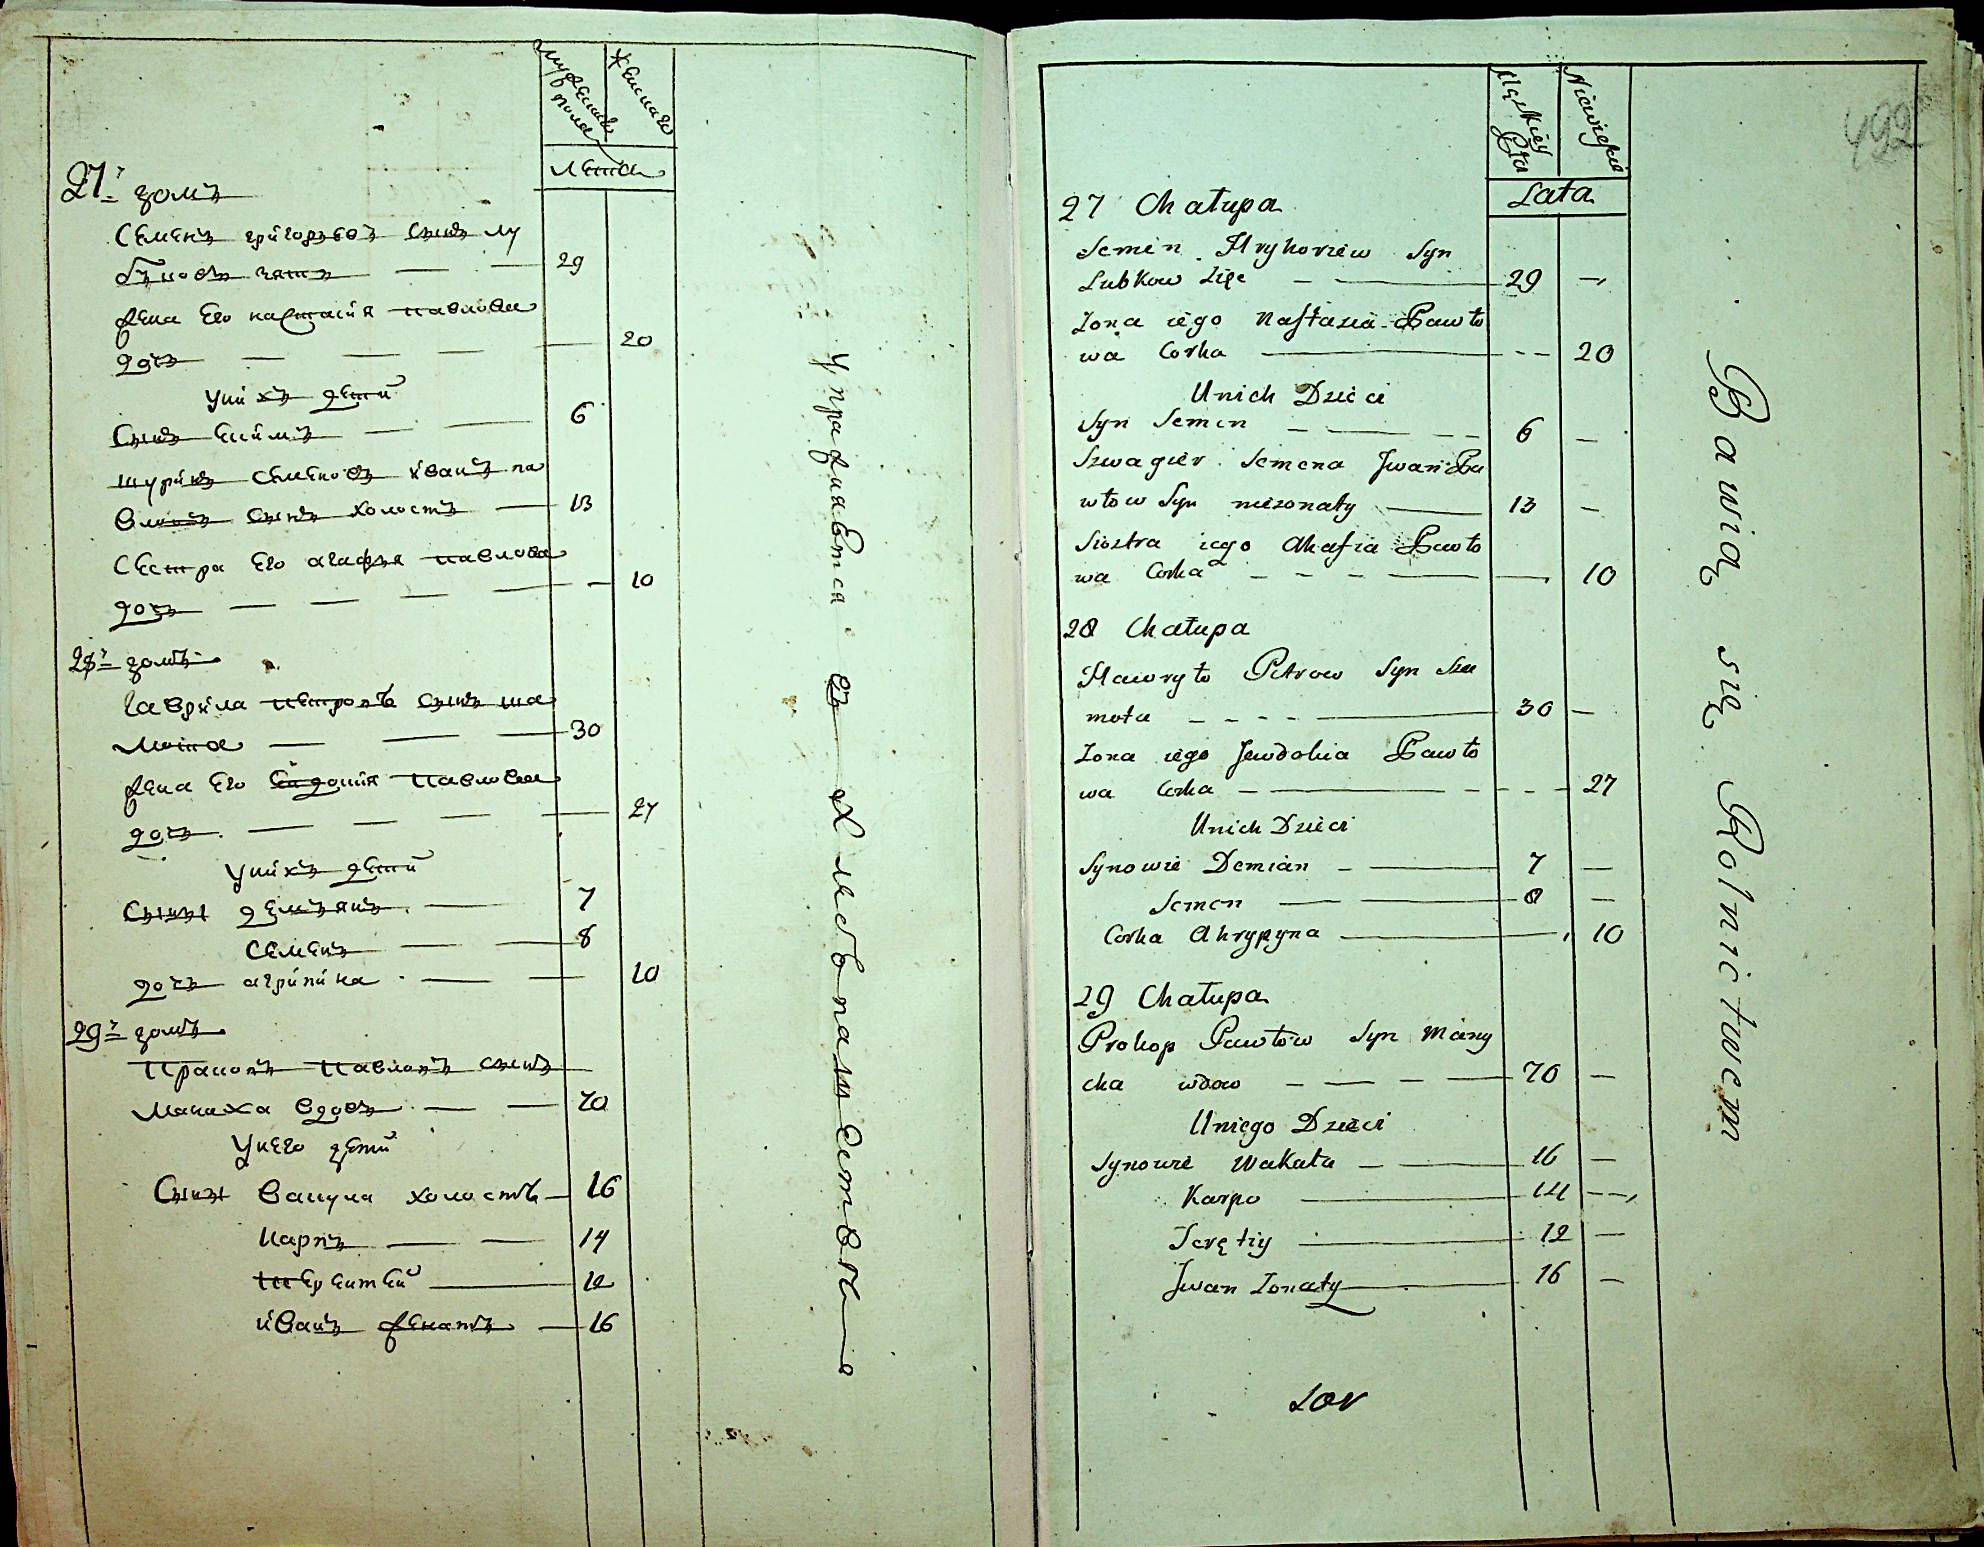 мужеска пола
женска
лета
27й домъ
Семенъ григорьевъ сынъ лу
бковъ зять — — 29
жена Его настасия павлова
дочь — — — — 20
У них дети
Сынъ — — 6
шуринъ Семеновъ иванъ па
вловъ сынъ холостъ — 13
Сестра Его агафия павлова
дочь — — — — — 10
28й домъ
гаврила петровъ сынъ ша
мота — — — 30
жена Его павлова
дочь — — — — 27
У нихъ дети
Сыны демьянъ — 7
Семенъ — — 8
дочь агрипина — — 10
29й домъ
Пракопъ павловъ сынъ
Маниха вдовъ — — 70
У него дети
Сыны Вакула холостъ — 16
Карпъ — — 14
12
иванъ женатъ — 16
Упражняется въ хлебопашестве
492
Męskiey Płci
Niewieściey
Lata
27 Chałupa
Semen Hryhoriew Syn
Lubkow Zięc — — 29 —
Zona iego Nastazia Pawło
wa Corka — -- 20
Unich Dzieci
Syn Semen — — -- 6 —
Szwagier Semena Jwan Pa
włow Syn niezonaty — 13 —
Siostra iego Ahafia Pawło
wa Corka — — — — — 10
28 Chałupa
Hawryło Petrow Syn Sza
mota - - - - — 30 —
Zona iego Jewdokia Pawło
wa Corka — — - - - 27
Unich Dzieci
Synowie Demian — — 7 —
Semen — — 8 —
Corka Ahrypyna — 10
29 Chałupa
Prokop Pawłow Syn Many
cha wdow — — — — 70 —
Uniego Dzieci
Synowie Wakuła — — 16 —
Karpo — 14 —
Terętiy — 12 —
Jwan Zonaty — 16 —
Bawią się Rolnictwem